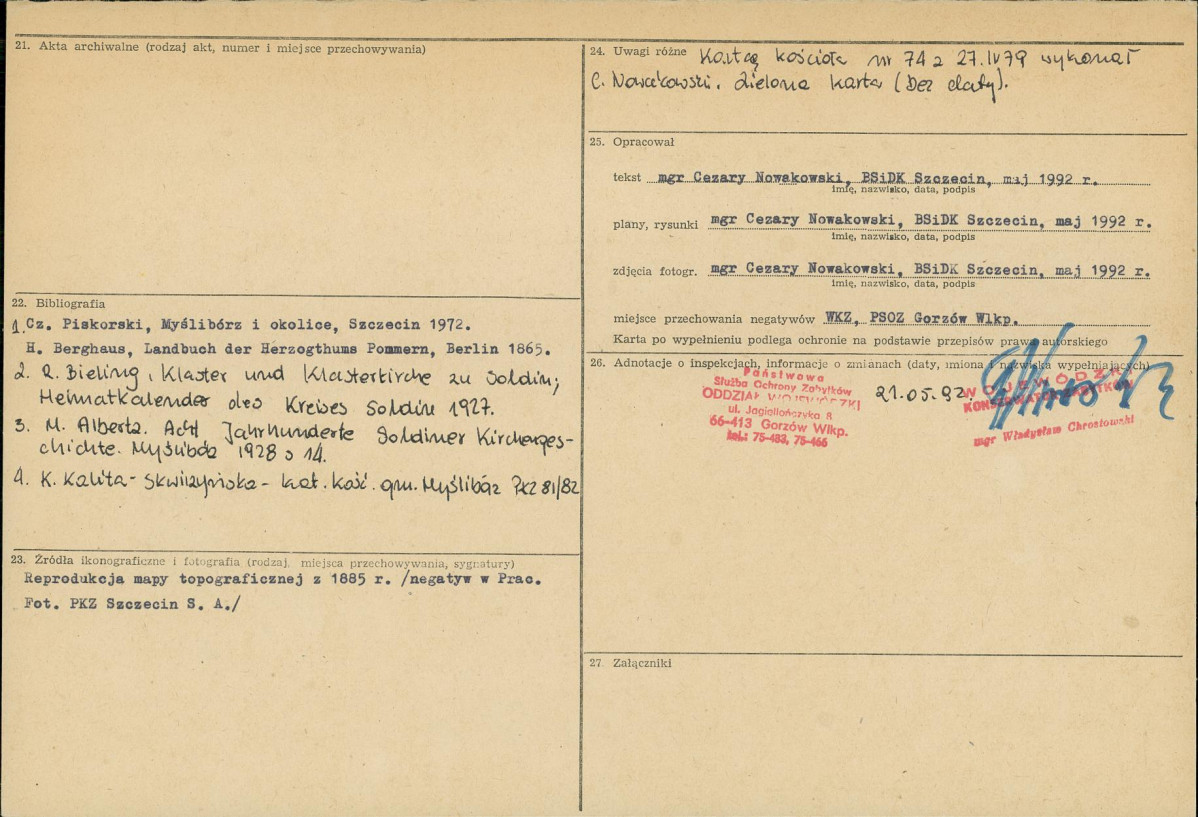 21. Akta archiwalne (rodzaj akt, numer i miejsce przechowywania)
22. Bibliografia
1. Cz. Piskorski, Myślibórz i okolice, Szczecin 1972.
H. Berghaus, Landbuch der Herzogthums Pommern, Berlin 1865.
2. R. Bieling, Klaster und Klasterkirche zu Soldin;
Heimatkalender des Kreises Soldin 1927.
3. M. Alberta. Acht Jahrhunderte Soldiner Kirchenges-
chichte. Myślibórz 1928 s 14.
4. K. Kalita-Skwirzyńska - kat. kość. gm. Myślibórz PKZ 81/82
23. Źródła ikonograficzne i fotografia (rodzaj, miejsca przechowywania, sygnatury)
Reprodukcja mapy topograficznej z 1885 r. /negatyw w Prac.
Fot. PKZ Szczecin S. A./
24. Uwagi różne Kartę kościoła nr 74 z 27.IV79 wykonał
C. Nowakowski. Zielona karta (bez daty).
25. Opracował
tekst mgr Cezary Nowakowski, BSiDK Szczecin, maj 1992 r.
imię, nazwisko, data, podpis
plany, rysunki mgr Cezary Nowakowski, BSiDK Szczecin, maj 1992 r.
imię, nazwisko, data, podpis
zdjęcia fotogr. mgr Cezary Nowakowski, BSiDK Szczecin, maj 1992 r.
imię, nazwisko, data, podpis
miejsce przechowania negatywów WKZ, PSOZ Gorzów Wlkp.
Karta po wypełnieniu podlega ochronie na podstawie przepisów prawa autorskiego
26. Adnotacje o inspekcjach, informacje o zmianach (daty, imiona i nazwiska wypełniających)
Państwowa
Służba Ochrony Zabytków
ODDZIAŁ WOJEWÓDZKI
ul. Jagiellończyka 8
66-413 Gorzów Wlkp.
tel.: 75-483, 75-466
21.05.92.
WOJEWÓDZKI
KONSERWATOR ZABYTKÓW
mgr Władysław Chrostowski
27. Załączniki